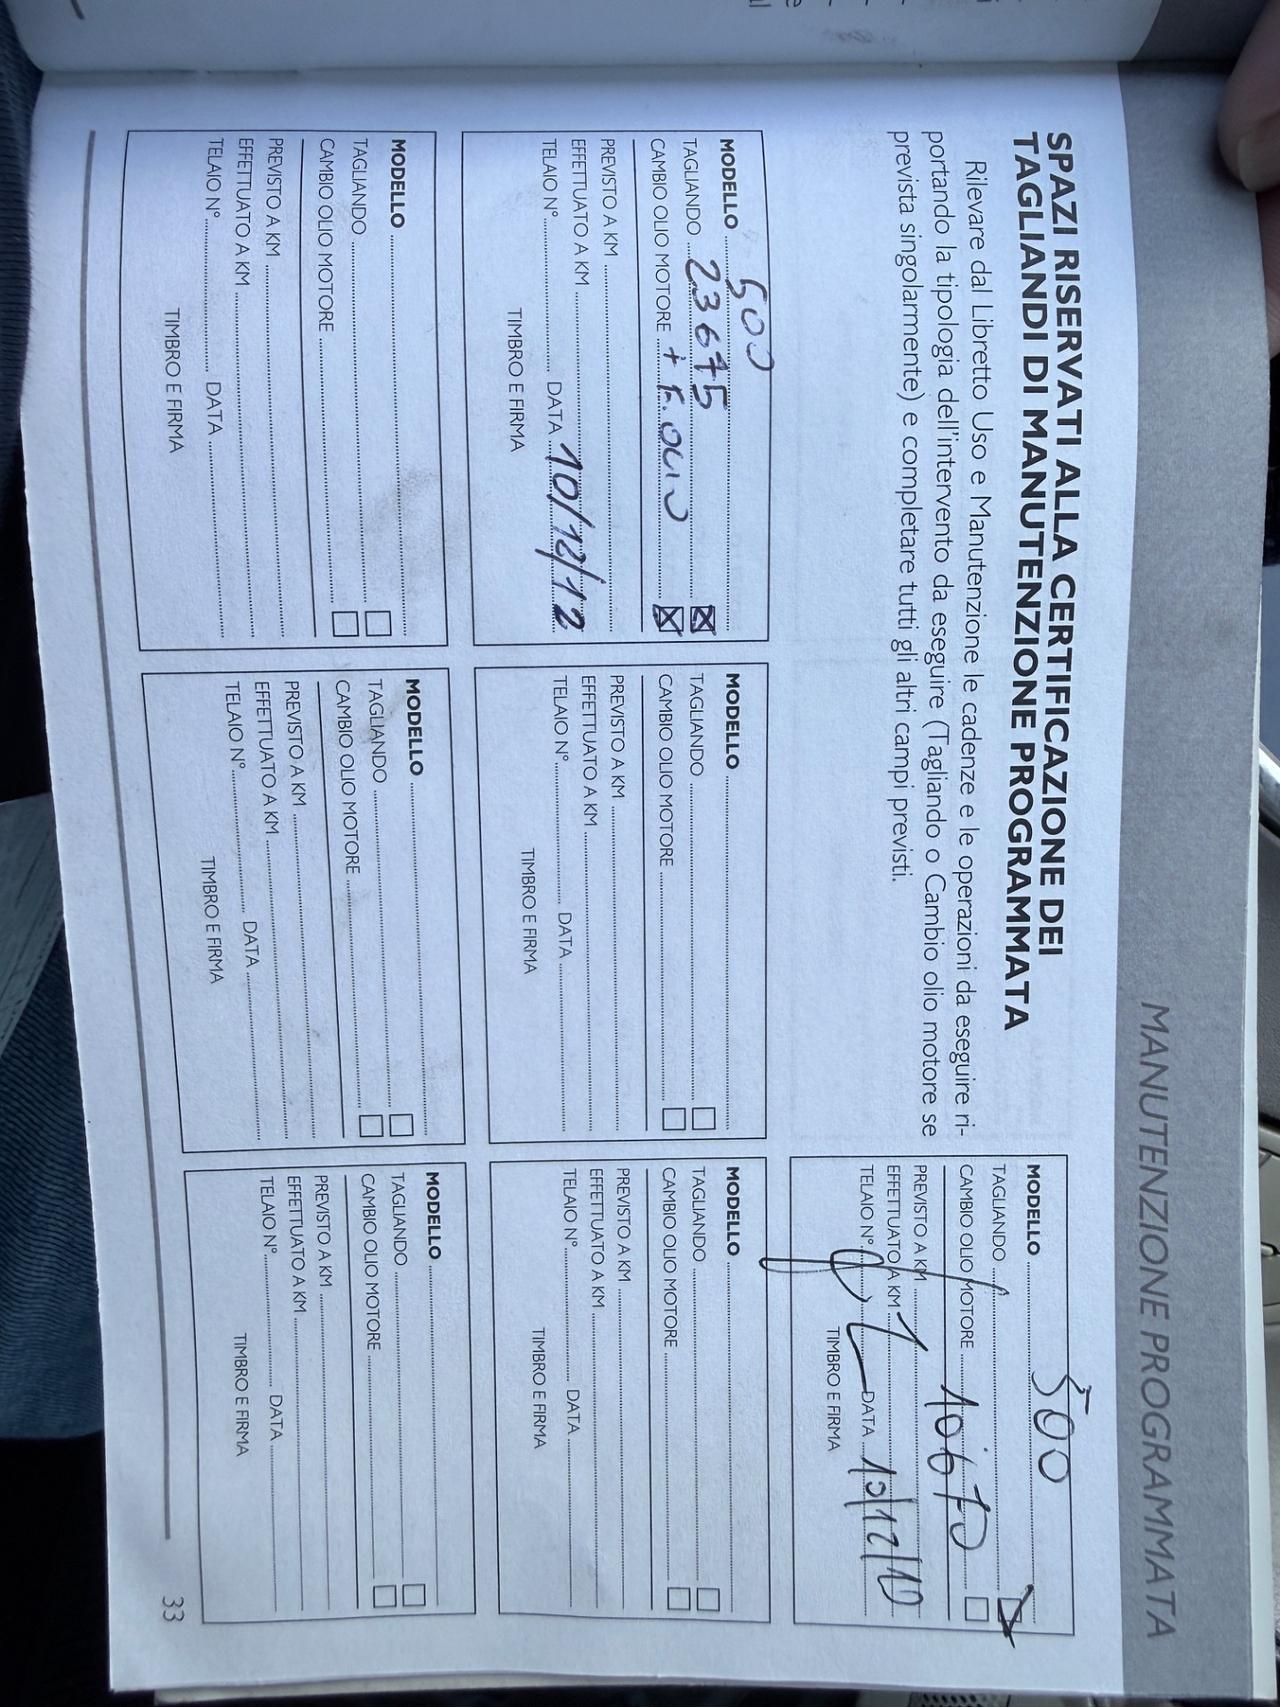 MANUTENZIONE PROGRAMMATA
SPAZI RISERVATI ALLA CERTIFICAZIONE DEI
TAGLIANDI DI MANUTENZIONE PROGRAMMATA
Rilevare dal Libretto Uso e Manutenzione le cadenze e le operazioni da eseguire ri-
portando la tipologia dell'intervento da eseguire (Tagliando o Cambio olio motore se
prevista singolarmente) e completare tutti gli altri campi previsti.
MODELLO 500
TAGLIANDO
CAMBIO OLIO MOTORE 10670
PREVISTO A KM
EFFETTUATO A KM
TELAIO N° DATA 10/12/10
TIMBRO E FIRMA
MODELLO 500
TAGLIANDO 23675
CAMBIO OLIO MOTORE + F. OLIO
PREVISTO A KM
EFFETTUATO A KM
TELAIO N° DATA 10/12/12
TIMBRO E FIRMA
MODELLO
TAGLIANDO
CAMBIO OLIO MOTORE
PREVISTO A KM
EFFETTUATO A KM
TELAIO N° DATA
TIMBRO E FIRMA
MODELLO
TAGLIANDO
CAMBIO OLIO MOTORE
PREVISTO A KM
EFFETTUATO A KM
TELAIO N° DATA
TIMBRO E FIRMA
MODELLO
TAGLIANDO
CAMBIO OLIO MOTORE
PREVISTO A KM
EFFETTUATO A KM
TELAIO N° DATA
TIMBRO E FIRMA
MODELLO
TAGLIANDO
CAMBIO OLIO MOTORE
PREVISTO A KM
EFFETTUATO A KM
TELAIO N° DATA
TIMBRO E FIRMA
MODELLO
TAGLIANDO
CAMBIO OLIO MOTORE
PREVISTO A KM
EFFETTUATO A KM
TELAIO N° DATA
TIMBRO E FIRMA
33